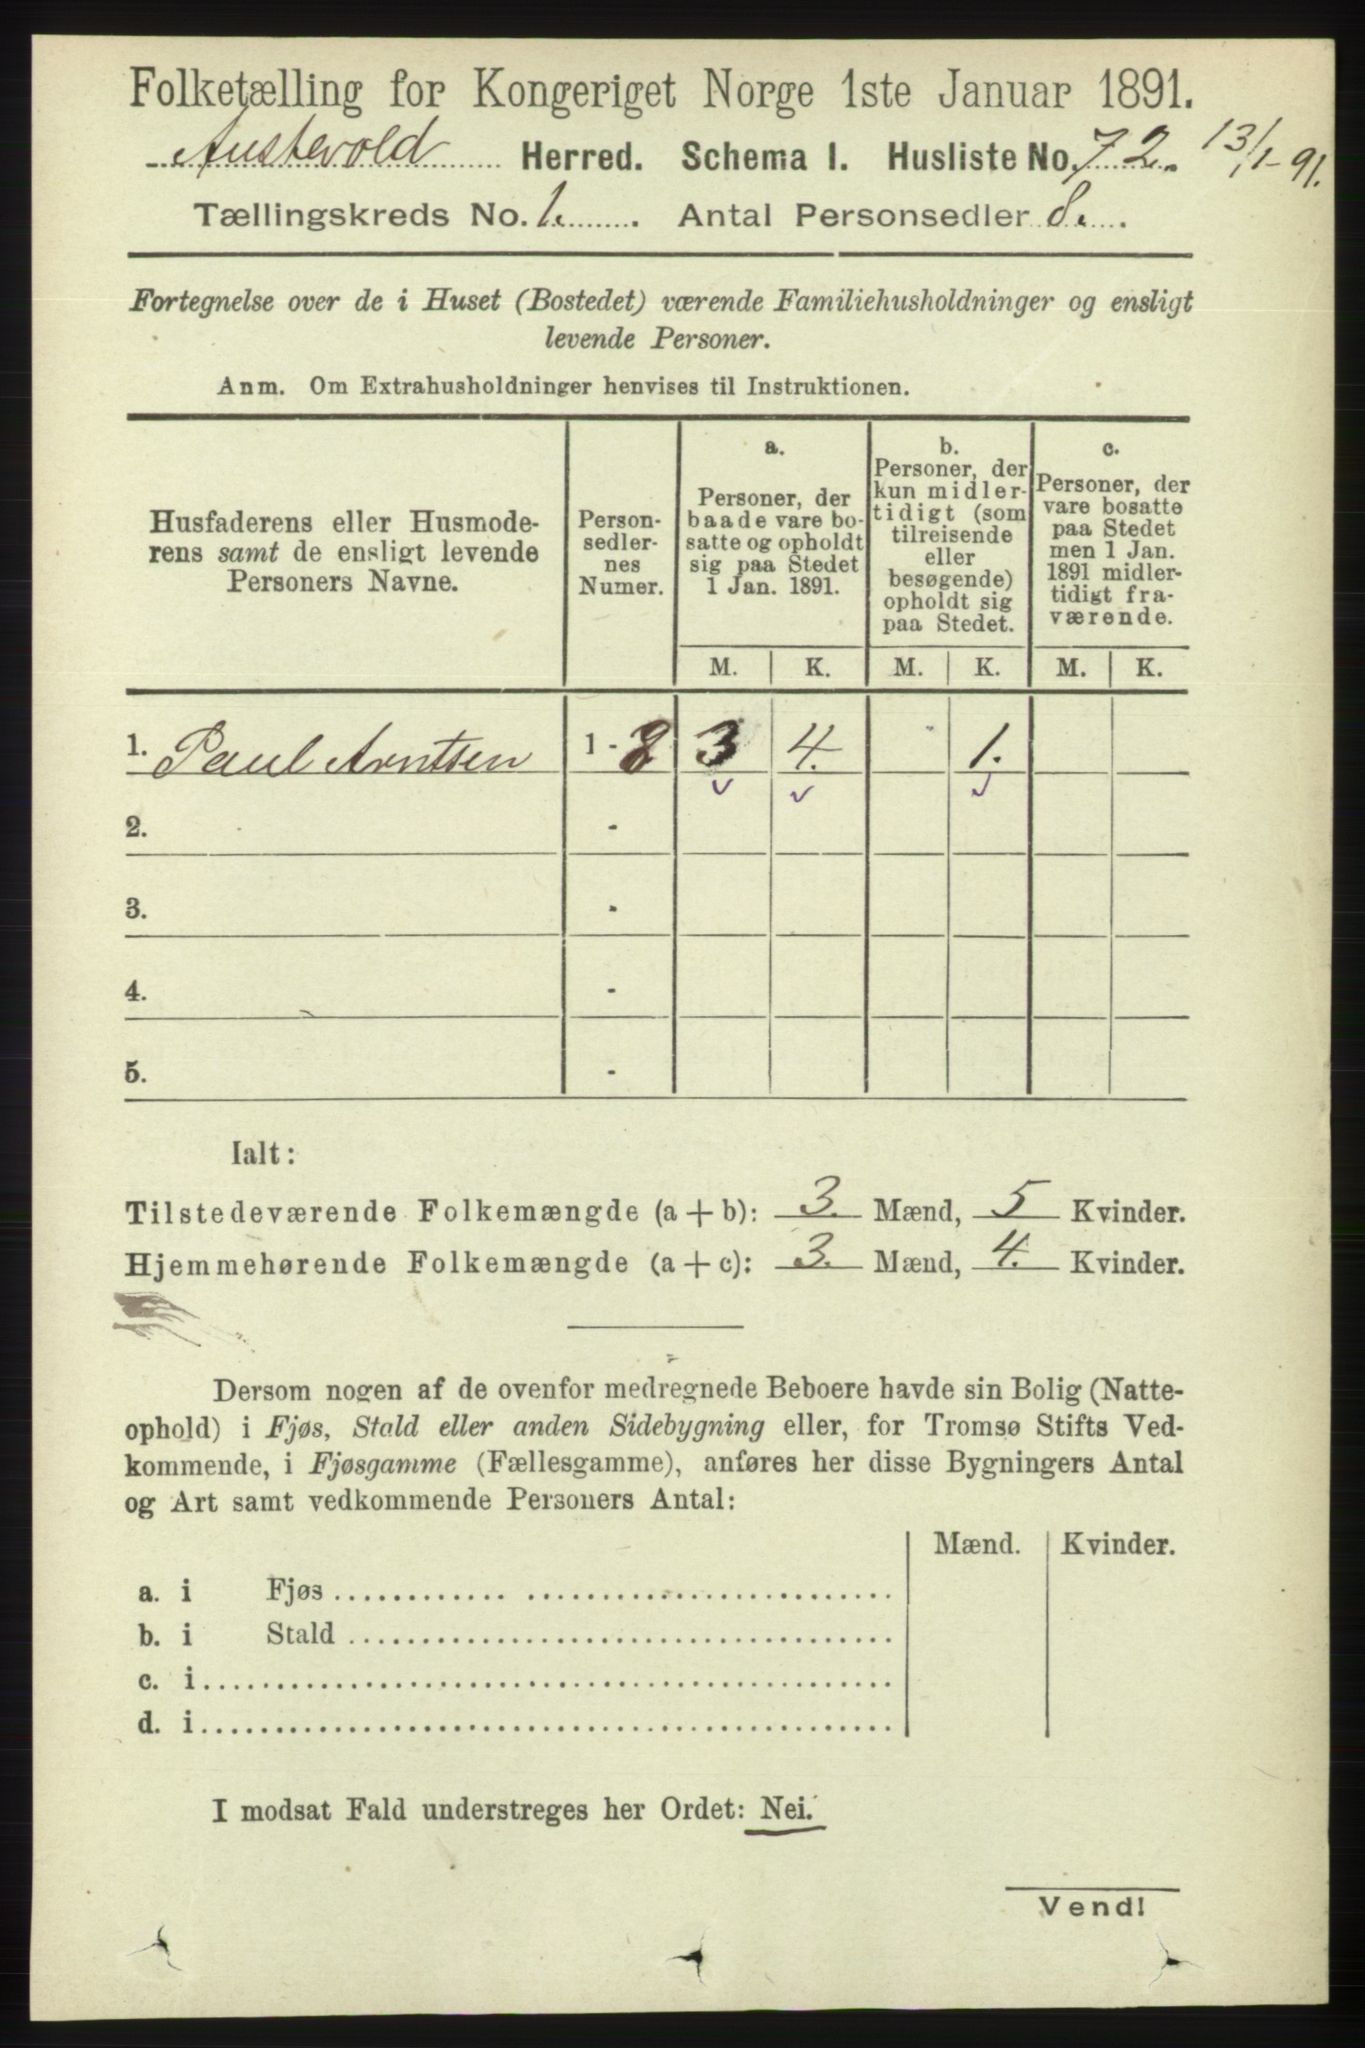 Folketælling for Kongeriget Norge 1ste Januar 1891.
Austevold Herred. Schema I. Husliste No. 72. 13/1-91.
Tællingskreds No. 1. Antal Personsedler 8.
Fortegnelse over de i Huset (Bostedet) værende Familiehusholdninger og ensligt
levende Personer.
Anm. Om Extrahusholdninger henvises til Instruktionen.
Husfaderens eller Husmode-
rens samt de ensligt levende
Personers Navne.
Person-
sedler-
nes
Numer.
a.
Personer, der
baade vare bo-
satte og opholdt
sig paa Stedet
1 Jan. 1891.
b.
Personer, der
kun midler-
tidigt (som
tilreisende
eller
besøgende)
opholdt sig
paa Stedet.
c.
Personer, der
vare bosatte
paa Stedet
men 1 Jan.
1891 midler-
tidigt fra-
værende.
M. K. M. K. M. K.
1. Paul Arntsen 1 - 8 3 4. 1.
2. -
3. -
4. -
5. -
Ialt:
Tilstedeværende Folkemængde (a + b): 3. Mænd, 5 Kvinder.
Hjemmehørende Folkemængde (a + c): 3. Mænd, 4. Kvinder.
Dersom nogen af de ovenfor medregnede Beboere havde sin Bolig (Natte-
ophold) i Fjøs, Stald eller anden Sidebygning eller, for Tromsø Stifts Ved-
kommende, i Fjøsgamme (Fællesgamme), anføres her disse Bygningers Antal
og Art samt vedkommende Personers Antal:
Mænd. Kvinder.
a. i Fjøs
b. i Stald
c. i
d. i
I modsat Fald understreges her Ordet: Nei.
Vend!